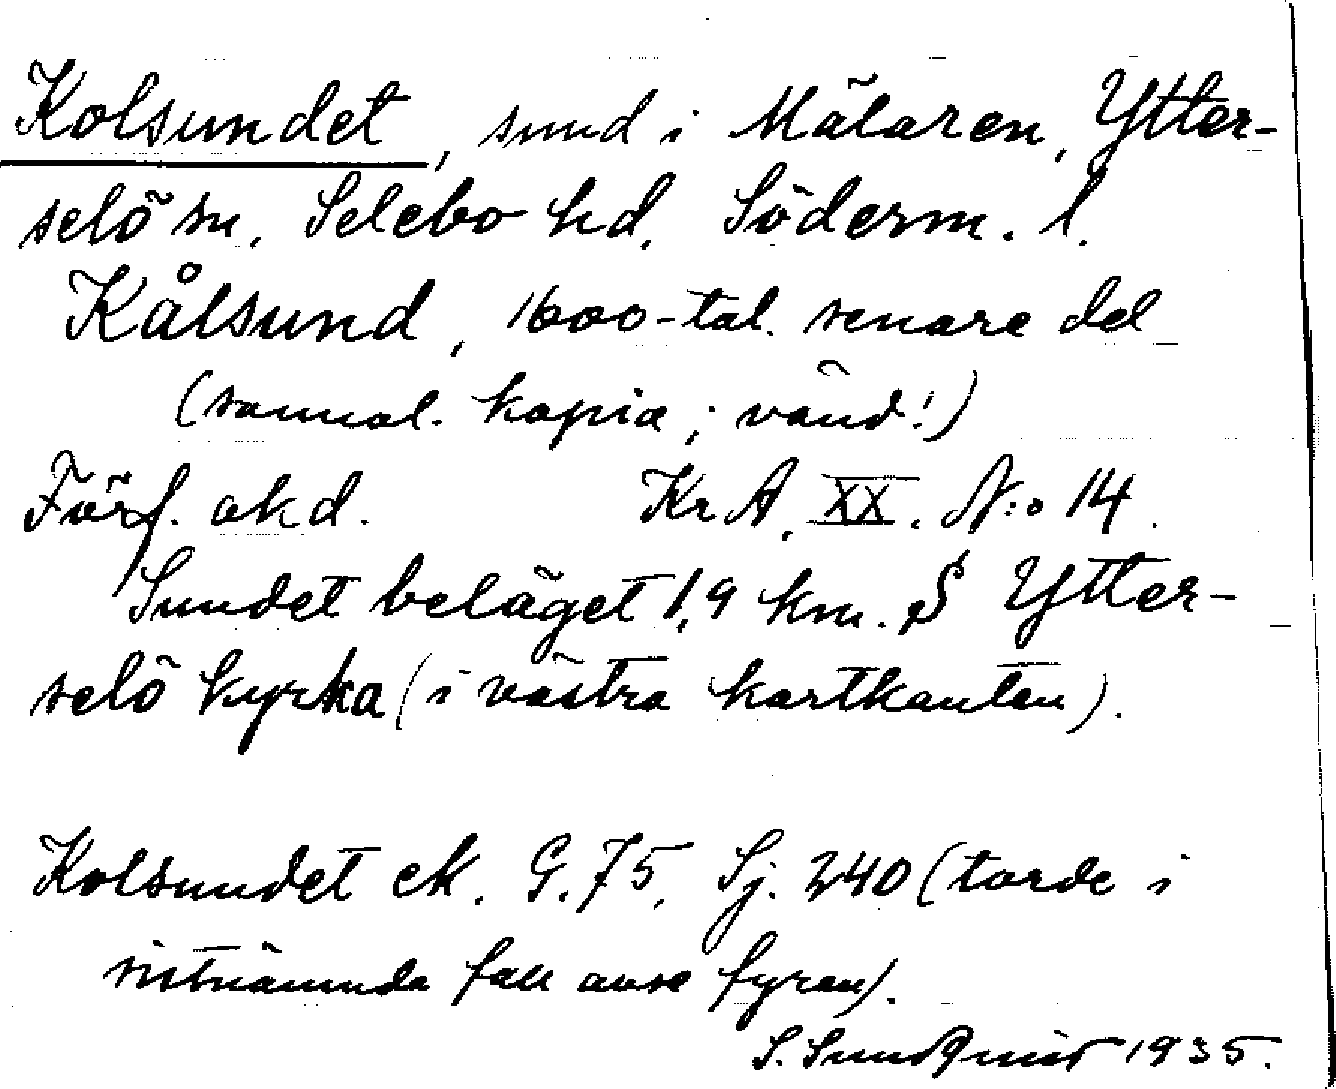 Kolsundet, sund i Mälaren, Ytter-
selö sn, Selebo hd, Söderm. l.
Kålsund, 1600-tal. senare del
(sannol. kopia; vänd!)
Förf. okd. KrA, XX. N:o 14.
Sundet beläget 1,9 km. S Ytter-
selö kyrka (i västra kartkanten).
Kolsundet ek. G. 75, Sj. 240 (torde i
sistnämnda fall avse fyren).
S. Sundquist 1935.